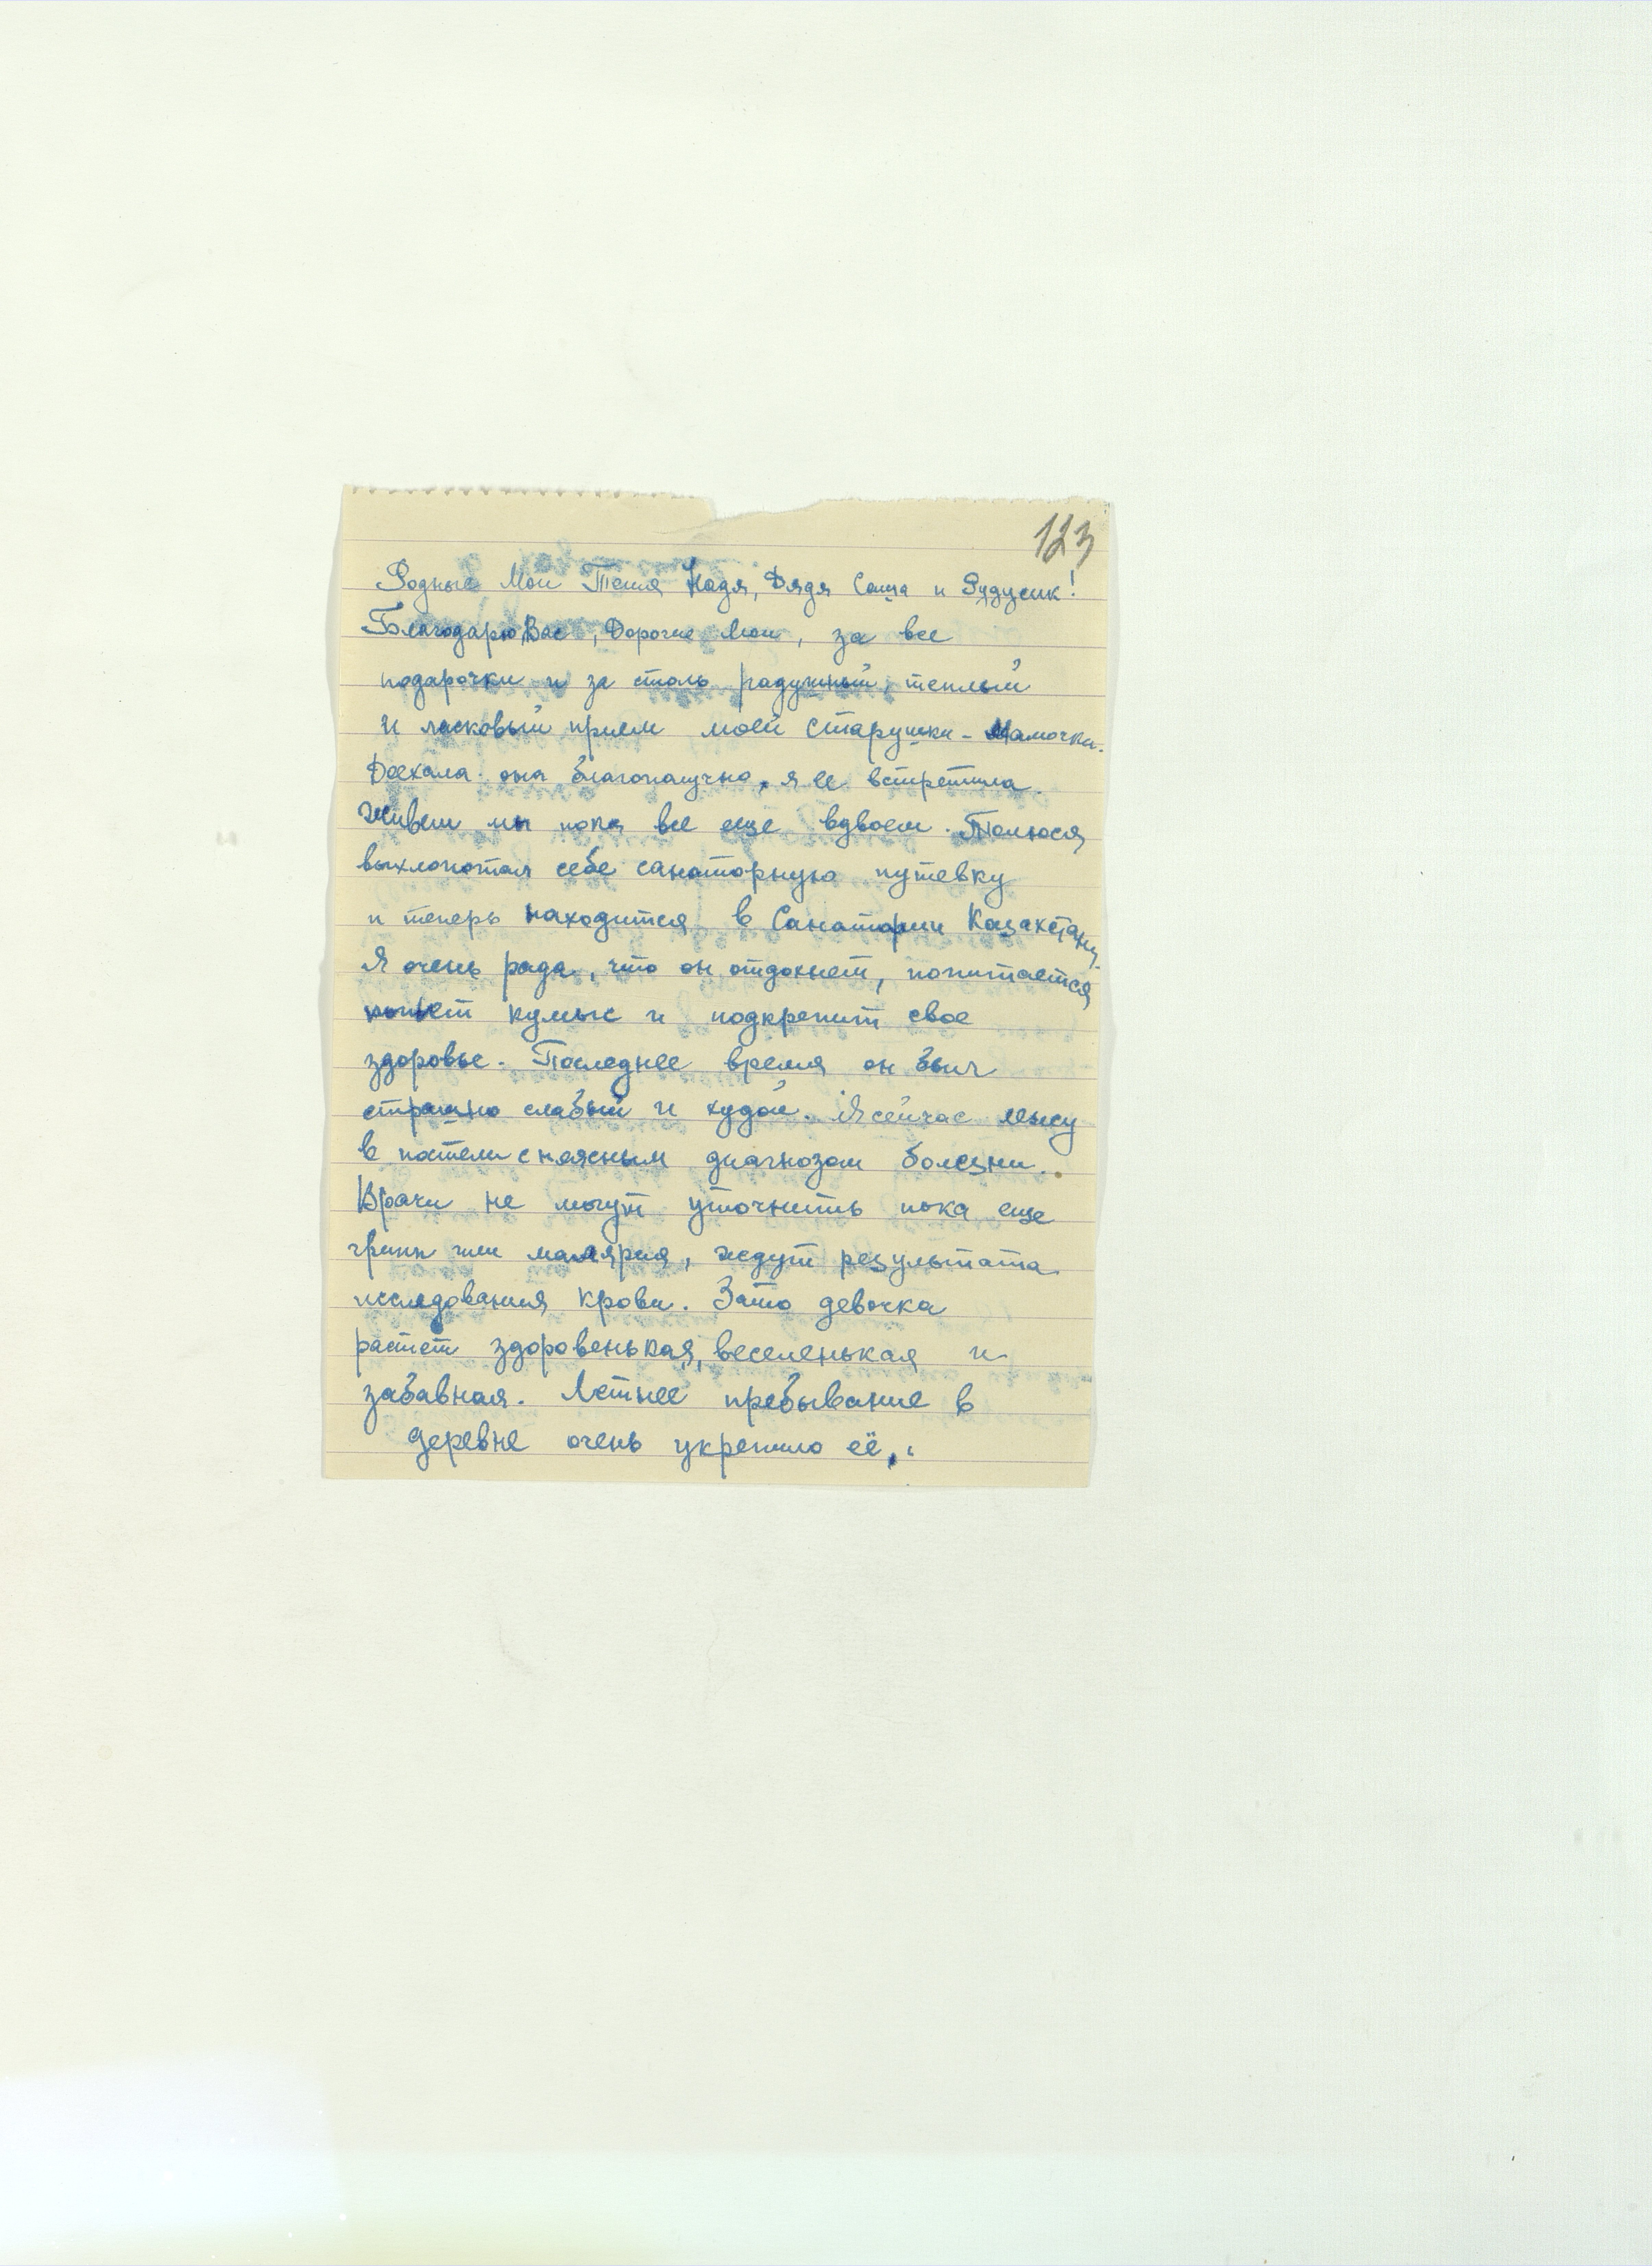 123
Родные Мои Тетя Надя, Дядя Саша и Рудусик!
Благодарю Вас, Дорогие Мои, за все
подарочки и за столь радушный, теплый
и ласковый прием моей старушки - Мамочки.
Доехала она благополучно, я ее встретила.
Живем мы пока все еще вдвоем. Толюся
выхлопотал себе санаторную путевку
и теперь находится в Санатории Казахстана.
Я очень рада, что он отдохнет, попитается
попьет кумыс и подкрепит свое
здоровье. Последнее время он был
страшно слабый и худой. Я сейчас лежу
в постели с неясным диагнозом болезни.
Врачи не могут уточнить пока еще
грипп или малярия, ждут результата
исследования крови. Зато девочка
растет здоровенькая, веселенькая и
забавная. Летнее пребывание в
деревне очень укрепило её,